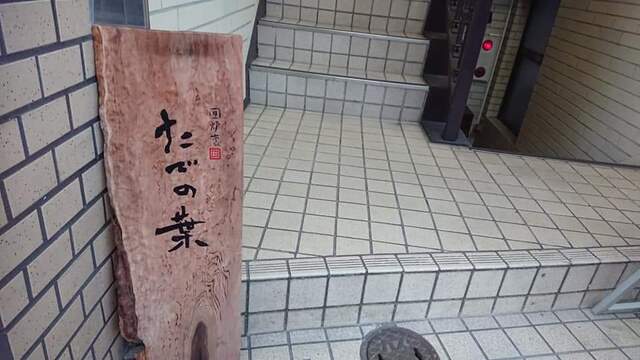 たでの葉